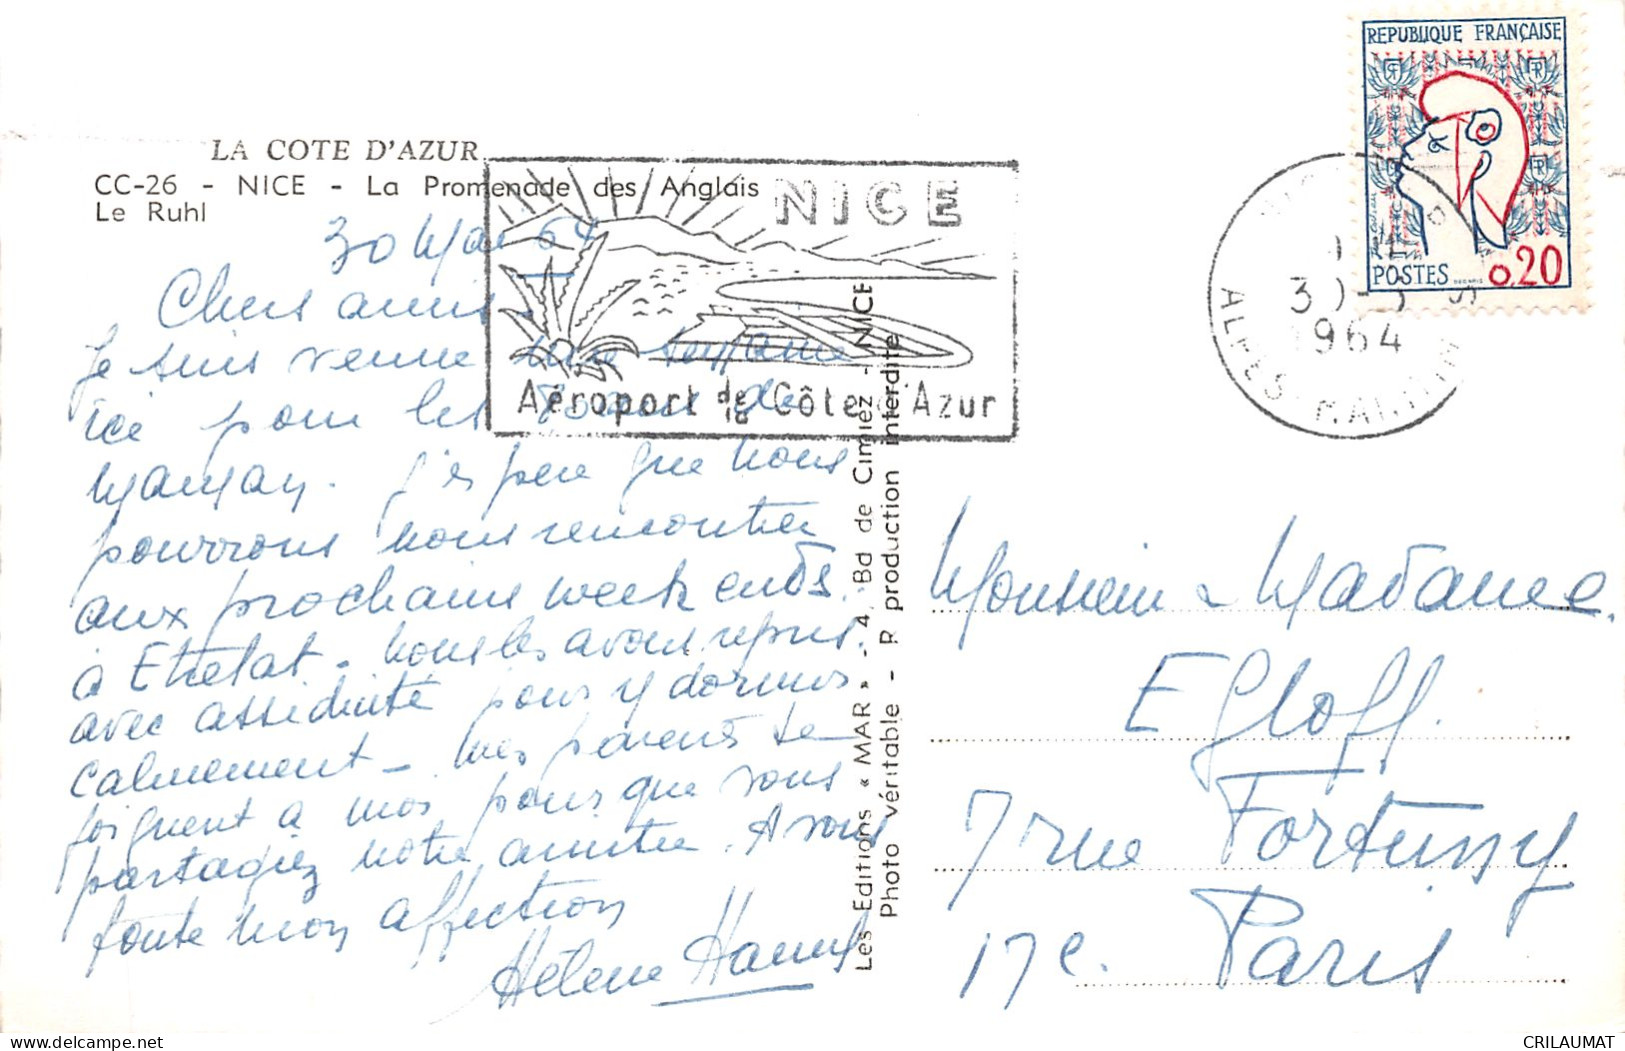 LA COTE D'AZUR
CC-26 - NICE - La Promenade des Anglais
Le Ruhl
NICE
Aéroport de Côte d'Azur
REPUBLIQUE FRANÇAISE
POSTES 0,20
1964
30 Mai 64
Chers amis
Je suis venue une semaine
ici pour les 
Maman. J'espère que nous
pourrons nous rencontrer
aux prochains week ends.
à Etretat - nous les avons repris
avec assiduité pour y dormir
calmement - mes parents se
joignent à moi pour que vous
partagiez notre amitié. A vous
toute mon affection
Hélène
Les Editions « MAR » - 4, Bd de Cimiez - NICE
Photo véritable - R production interdite
Monsieur & Madame
Egloff.
7 rue Fortuny
Paris
17e.
delcampe.net
CRILAUMAT